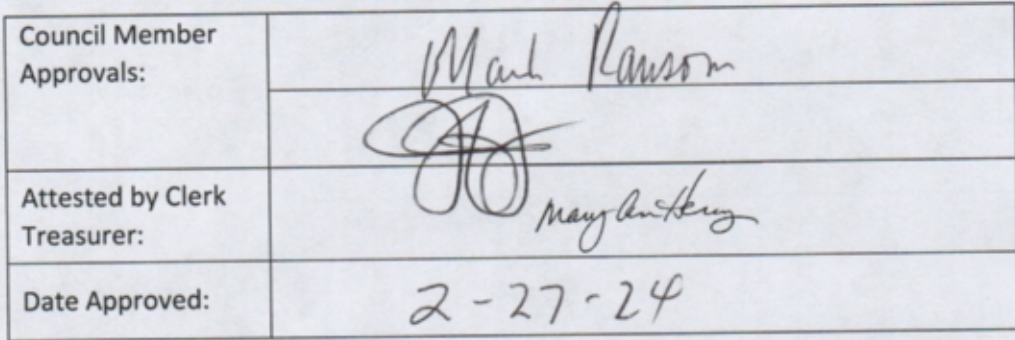 Council Member
Approvals:
Mark Ransom
Attested by Clerk
Treasurer:
Date Approved:
2-27-24